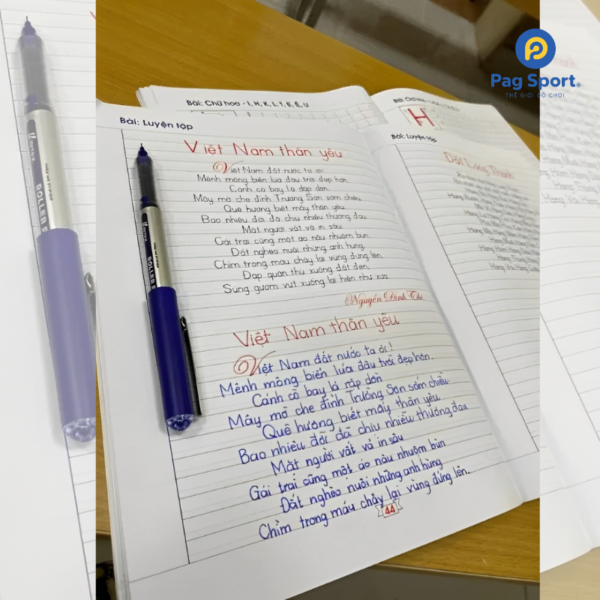 Pag Sport®
THẾ GIỚI ĐỒ CHƠI
Bài: Chữ hoa - I, H, K, L,
Bài: Luyện tập
Việt Nam thân yêu
Việt Nam đất nước ta ơi,
Mênh mông biển lúa đâu trời đẹp hơn
Cánh cò bay lả dập dờn
Mây mờ che đỉnh Trường Sơn sớm chiều
Quê hương biết mấy thân yêu
Bao nhiêu đời đã chịu nhiều thương đau
Mặt người vất vả in sâu
Gái trai cũng một áo nâu nhuộm bùn
Đất nghèo nuôi những anh hùng
Chìm trong máu chảy lại vùng đứng lên
Đạp quân thù xuống đất đen
Súng gươm vứt xuống lại hiền như xưa
Nguyễn Đình Thi
Việt Nam thân yêu
Việt Nam đất nước ta ơi!
Mênh mông biển lúa đâu trời đẹp hơn
Cánh cò bay lả rập dờn
Mây mờ che đỉnh Trường Sơn sớm chiều
Quê hương biết mấy thân yêu
Bao nhiêu đời đã chịu nhiều thương đau
Mặt người vất vả in sâu
Gái trai cũng một áo nâu nhuộm bùn
Đất nghèo nuôi những anh hùng
Chìm trong máu chảy lại vùng đứng lên.
44
H
Bài: Luyện tập
ROLLER